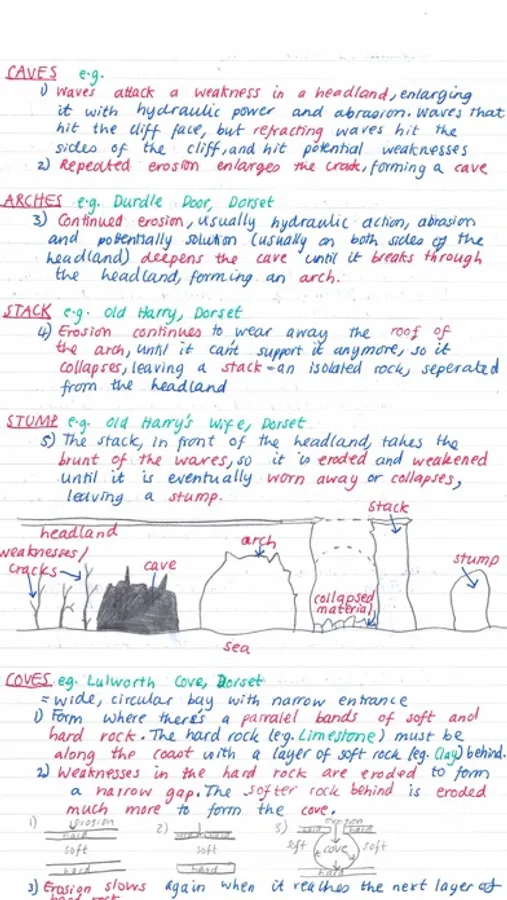 CAVES e.g.
1) Waves attack a weakness in a headland, enlarging
it with hydraulic power and abrasion. Waves that
hit the cliff face, but refracting waves hit the
sides of the cliff, and hit potential weaknesses
2) Repeated erosion enlarges the crack, forming a cave
ARCHES e.g. Durdle Door, Dorset
3) Continued erosion, usually hydraulic action, abrasion
and pottentially solution (usually on both sides of the
headland) deepens the cave until it breaks through
the headland, forming an arch.
STACK e.g. Old Harry, Dorset
4) Erosion continues to wear away the roof of
the arch, until it can't support it anymore, so it
collapses, leaving a stack - an isolated rock, seperated
from the headland
STUMP e.g. Old Harry's Wife, Dorset
5) The stack, in front of the headland, takes the
brunt of the waves, so it is eroded and weakened
until it is eventually worn away or collapses,
leaving a stump.
stack
headland
weaknesses/
cracks
cave
arch
stump
collapsed
material
sea
COVES eg. Lulworth Cove, Dorset
= wide, circular bay with narrow entrance
1) Form where there's a parralel bands of soft and
hard rock. The hard rock (eg. Limestone) must be
along the coast with a layer of soft rock (eg. Clay) behind.
2) Weaknesses in the hard rock are eroded to form
a narrow gap. The softer rock behind is eroded
much more to form the cove.
1) erosion
hard
soft
hard
2)
hard
soft
hard
3) erosion
hard hard
soft cove soft
hard
3) Erosion slows again when it reaches the next layer of
hard rock